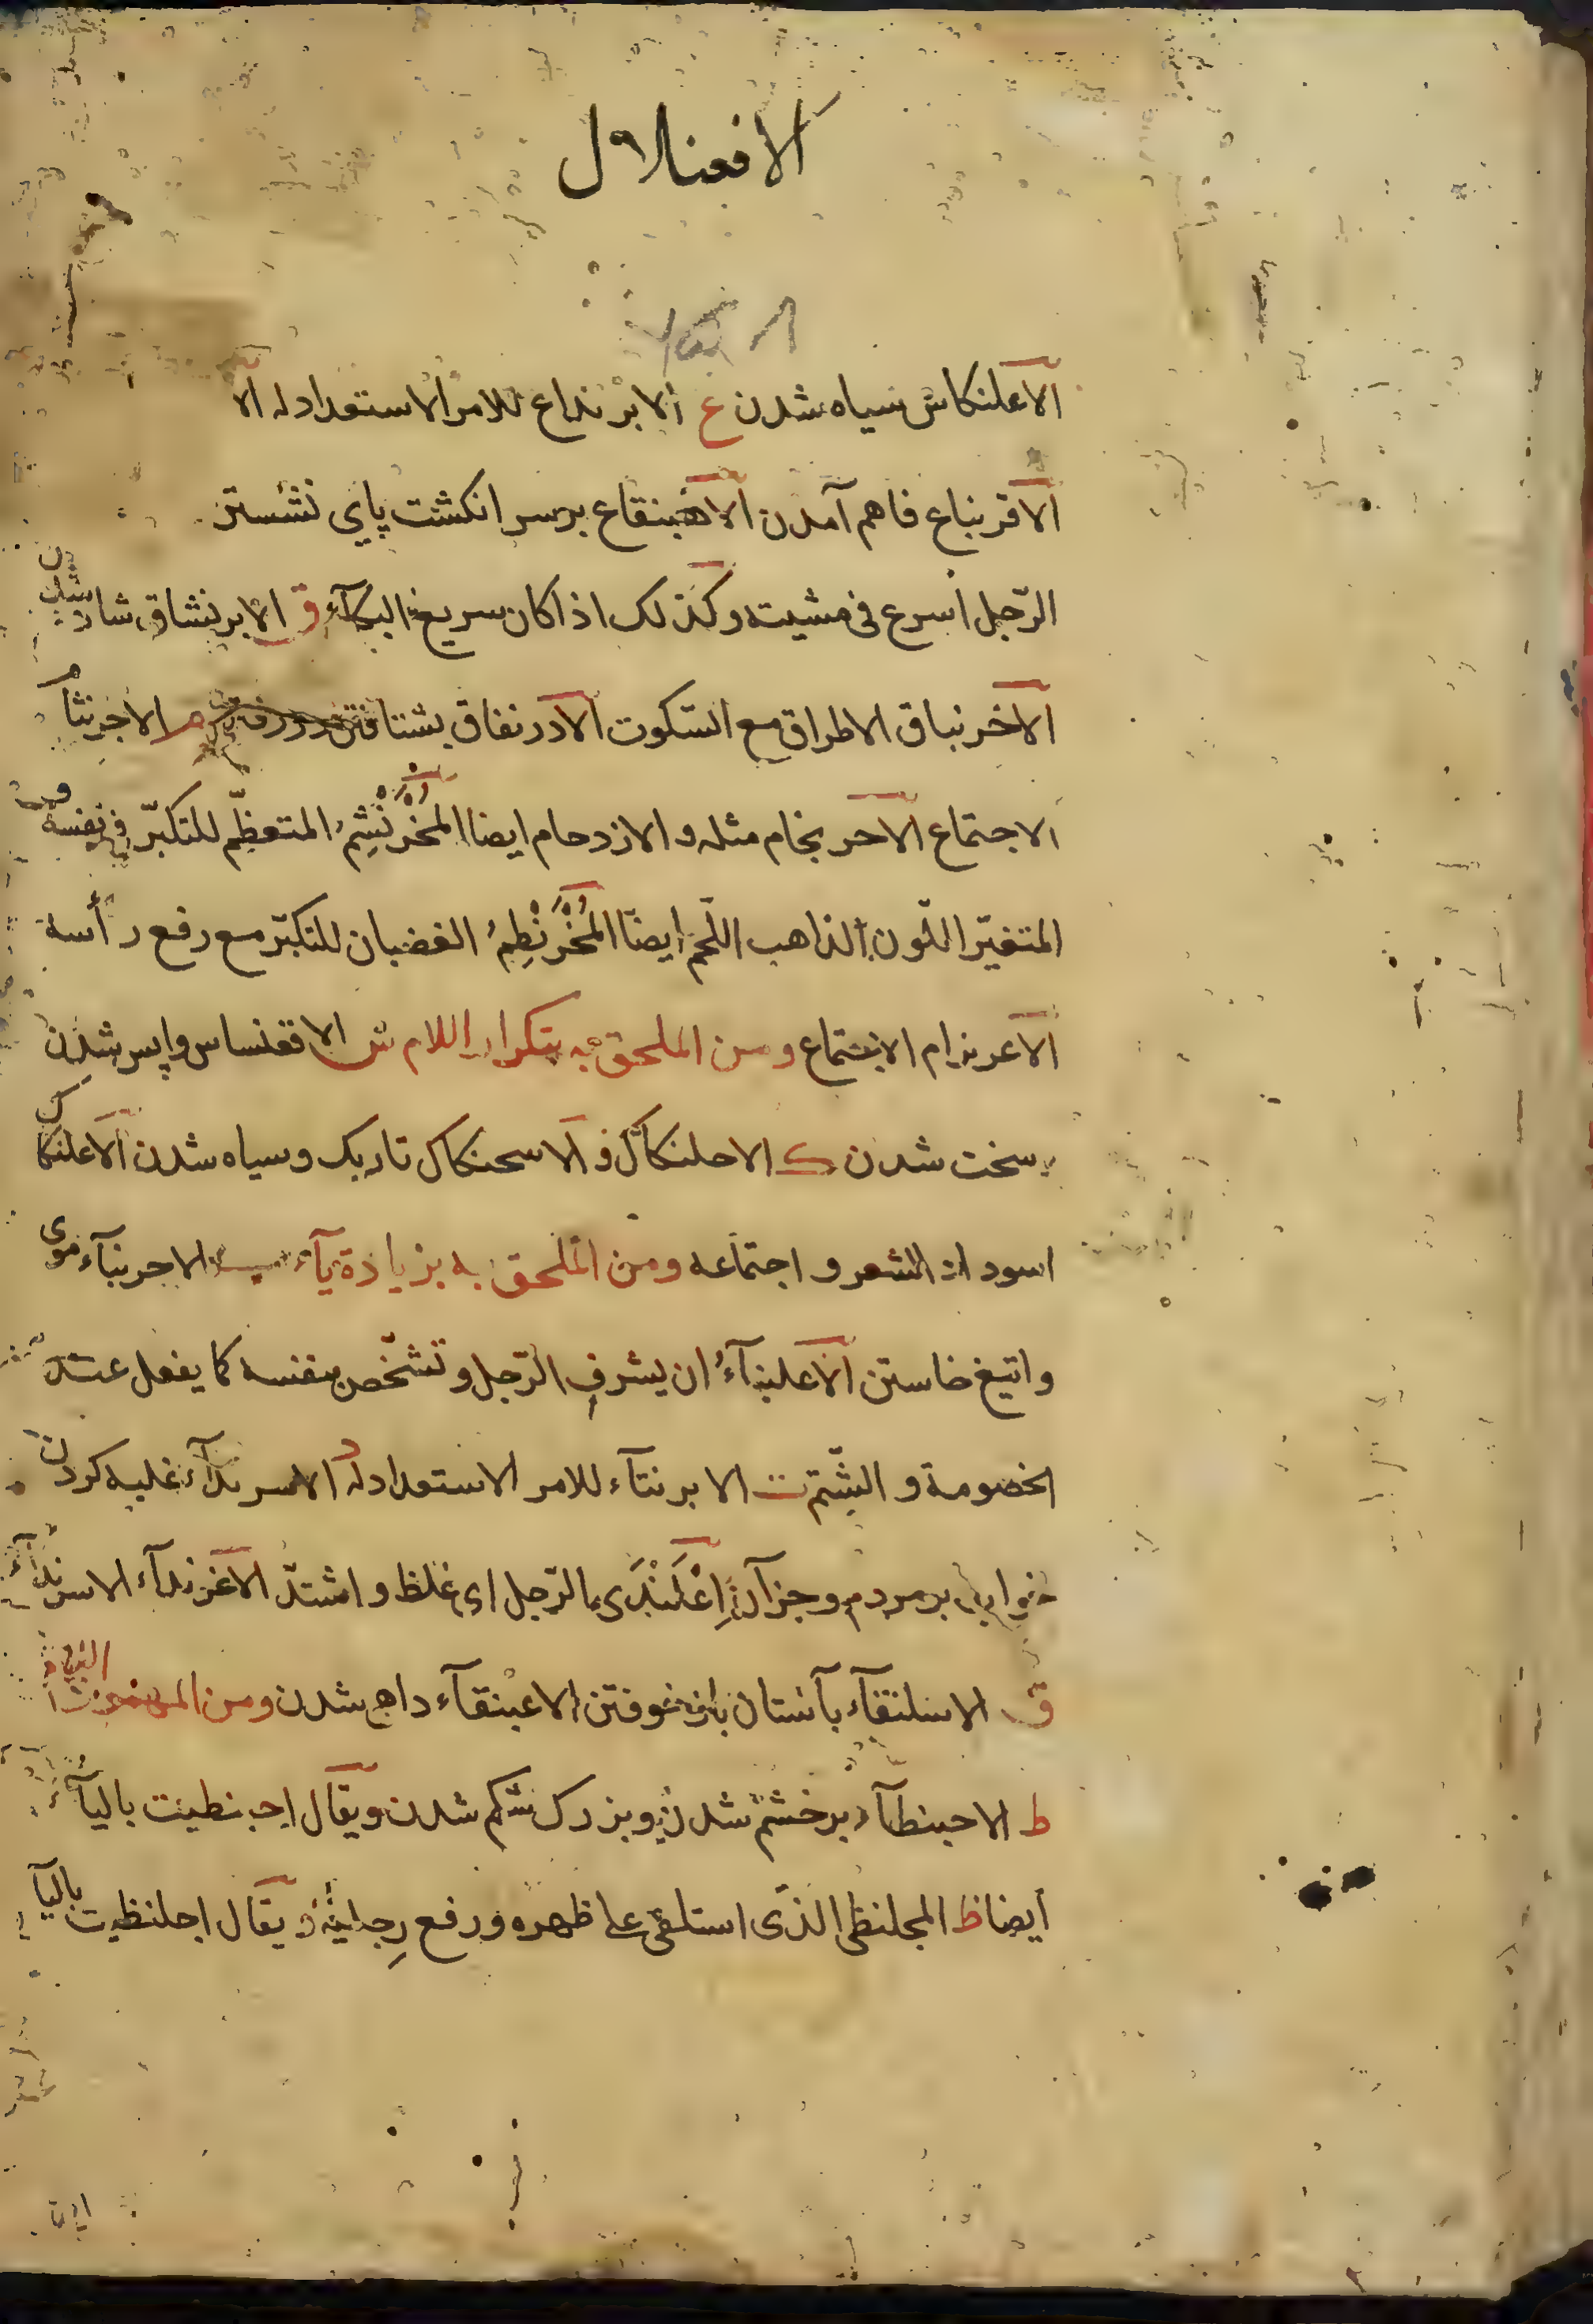 الافعنلال
الاعلنكاش سیاه شدن ع الابرنذاع للامر الاستعداد له الا
الاقرنباع فاهم آمدن الاهبنقاع برسر انکشت پاي نشستن
الرّجل اسرع فی مشیته وکذلک اذا کان سریع البکآء ق الابرنشاق شاد شدن
الاخرنباق الاطراق مع السّکوت الادرنفاق بشتافتن م الاجرنثام
الاجتماع الاحرنجام مثله و الازدحام ایضا المُخْرَنْثِمُ المتعظّم للتکبّر فی نفسه و
المتغیّر اللّون الذاهب اللّحم ایضًا المُخْرَنْطِمُ الغضبان للتکبّر مع رفع رأسه
الاعرنزام الاجتماع ومن الملحق به بتکرار اللام س الاقعنساس واپس شدن
سخت شدن ک الاحلنکاک و الاسحنکاک تاریک وسیاه شدن الاعلنکاک
اسوداد الشعر و اجتماعه ومن الملحق به بزیادة یآء ب الاحرنبآء موی
واتیغ خاستن الاعلنبآء ان یشرف الرّجل و تشخّص بنفسه کما یفعل عند
الخصومة و الشّتم ت الابرنتآء للامر الاستعداد له د الاسرندآء غلبه کردن
خواب بر مردم وجزآن اِعْلَنْدَی الرّجل ای غلظ و اشتدّ الاغرندآء الاسرندآء
ق الاسلنقآء بآستان باز خوفتن الاعبنقآء داهی شدن ومن المهموز
ط الاحبنطآء برخشم شدن وبزرک شکم شدن ویقال احبنطیت بالیآء
ایضا ظ المجلنظی الذّی استلقی علی ظهره ورفع رِجلیه و یقال اجلنظیت بالیآء